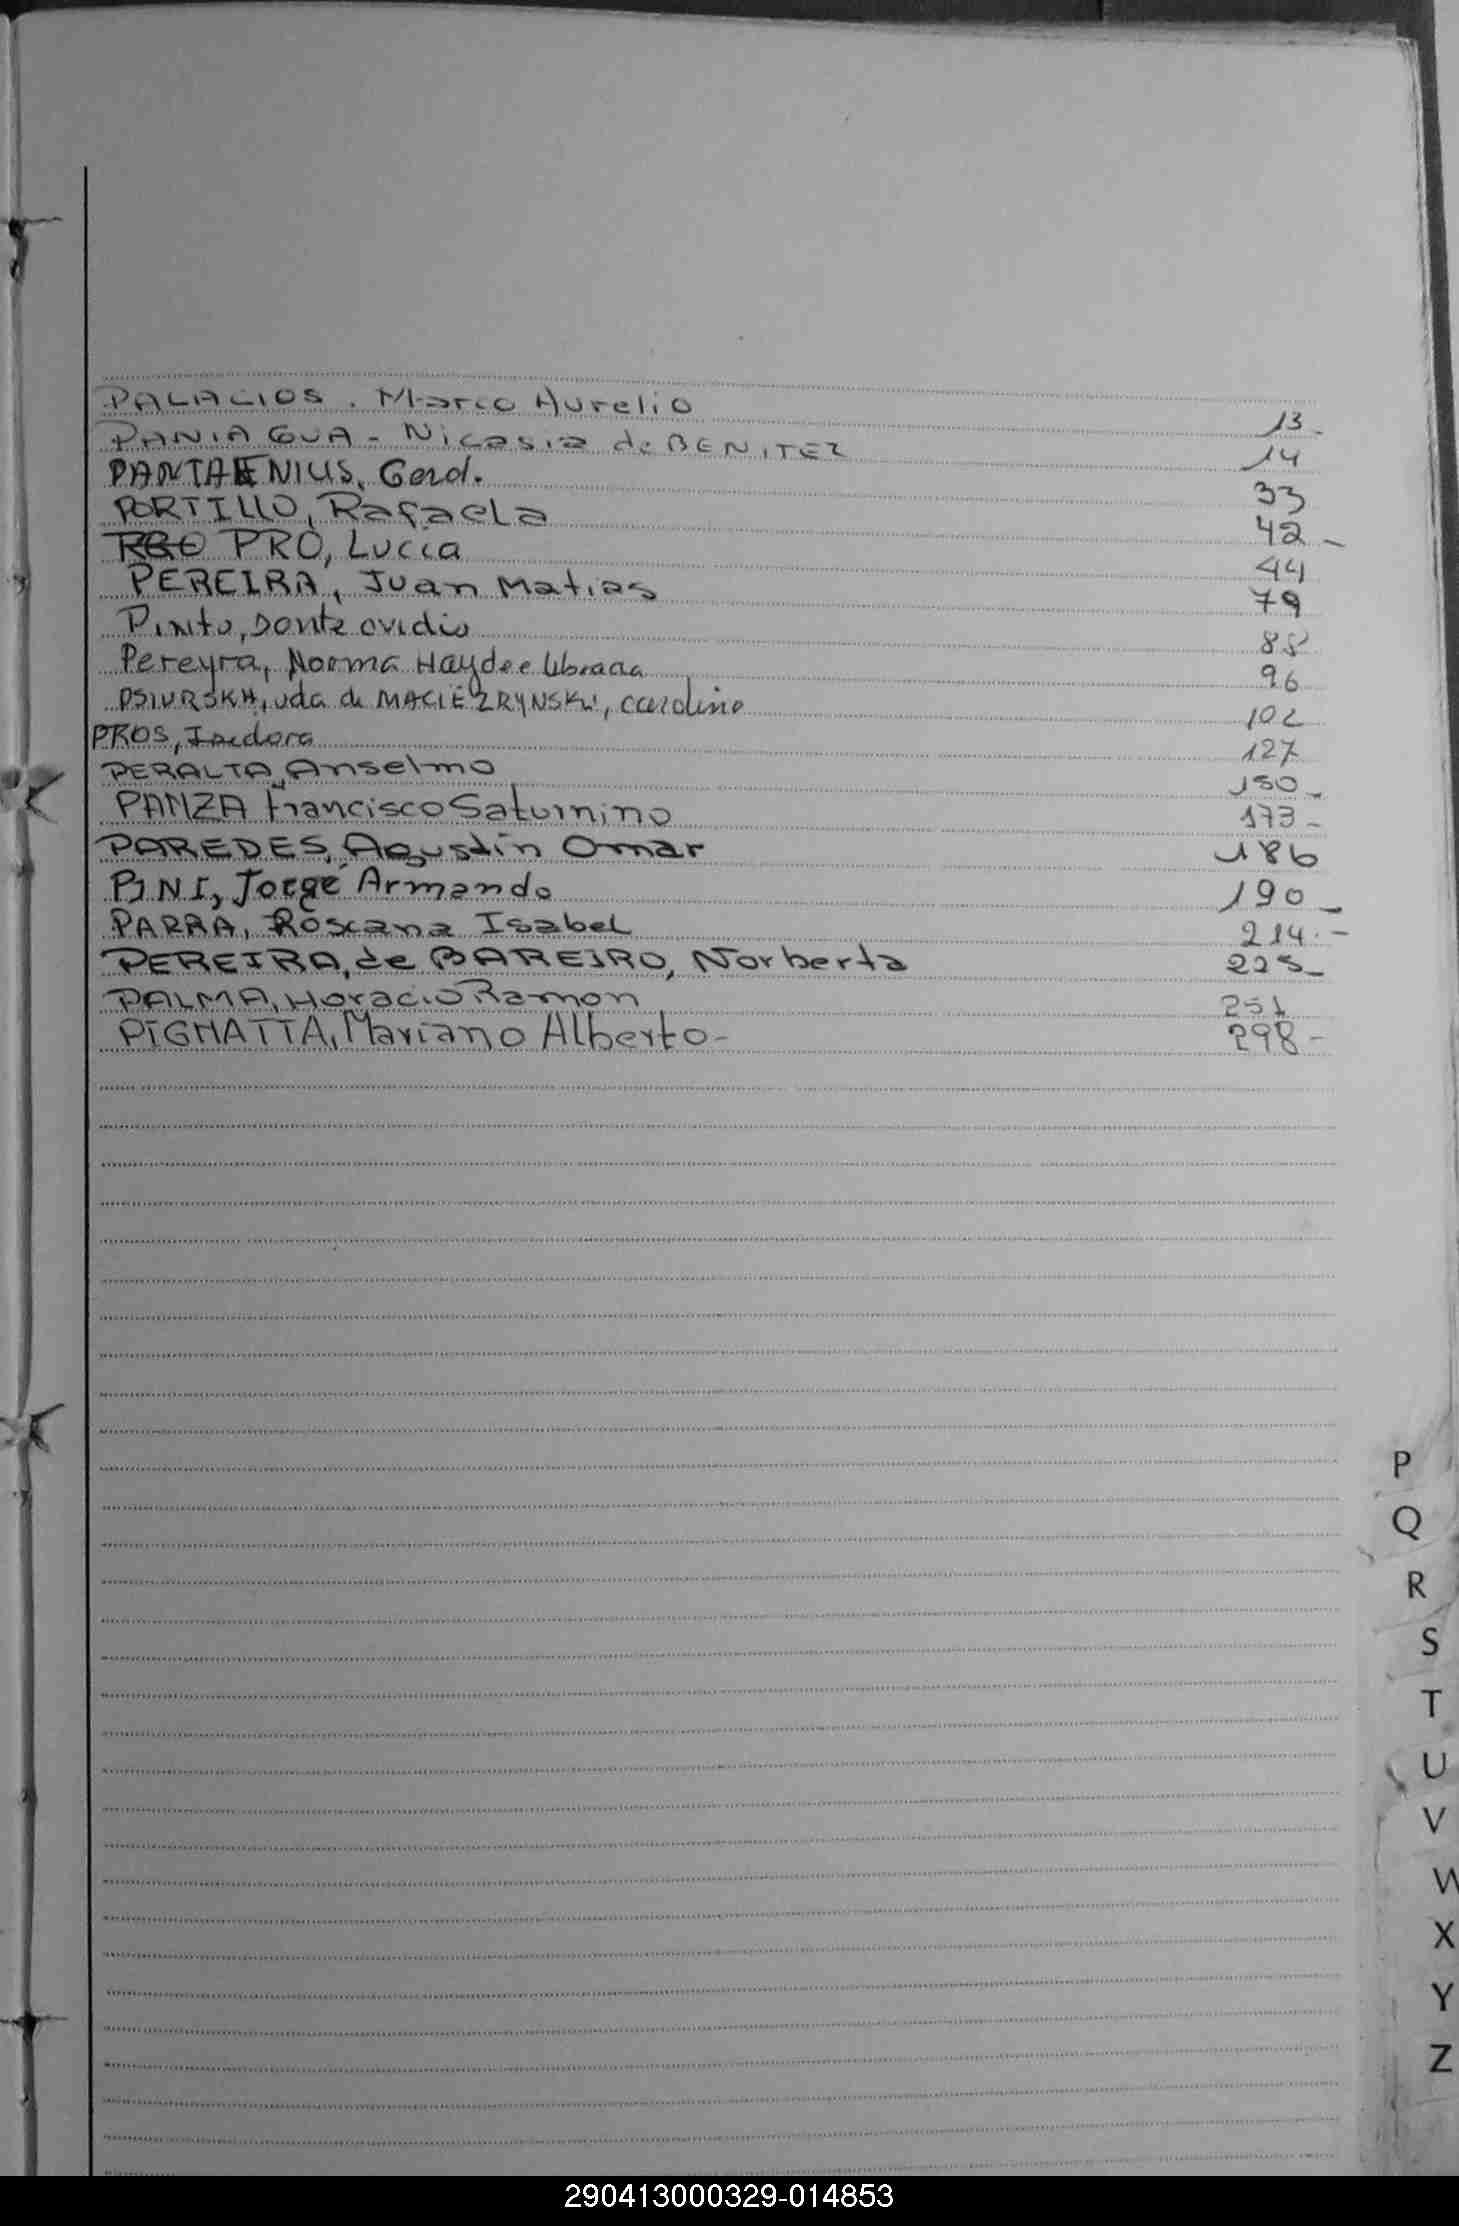 PALACIOS. Marco Aurelio 13-
PANIAGUA - Nicasia de BENITEZ 14
PANTAENIUS, Gerd. 33
PORTILLO, Rafaela 42-
PRO, Lucia 44
PEREIRA, Juan Matias 79
Pinto, Dante Ovidio 88
Pereyra, Norma Haydee 96
PSIURSKA, vda de MACIEZRYNSKI, Carolina 102
PROS, Isidora 127
PERALTA, Anselmo 150-
PANZA Francisco Saturnino 173-
PAREDES, Agustin Omar 186
PINI, Jorge Armando 190-
PARRA, Roxana Isabel 214.-
PEREIRA, de BAREIRO, Norberta 225-
PALMA, Horacio Ramon 251
PIGNATTA, Mariano Alberto- 298-
P
Q
R
S
T
U
V
W
X
Y
Z
290413000329-014853